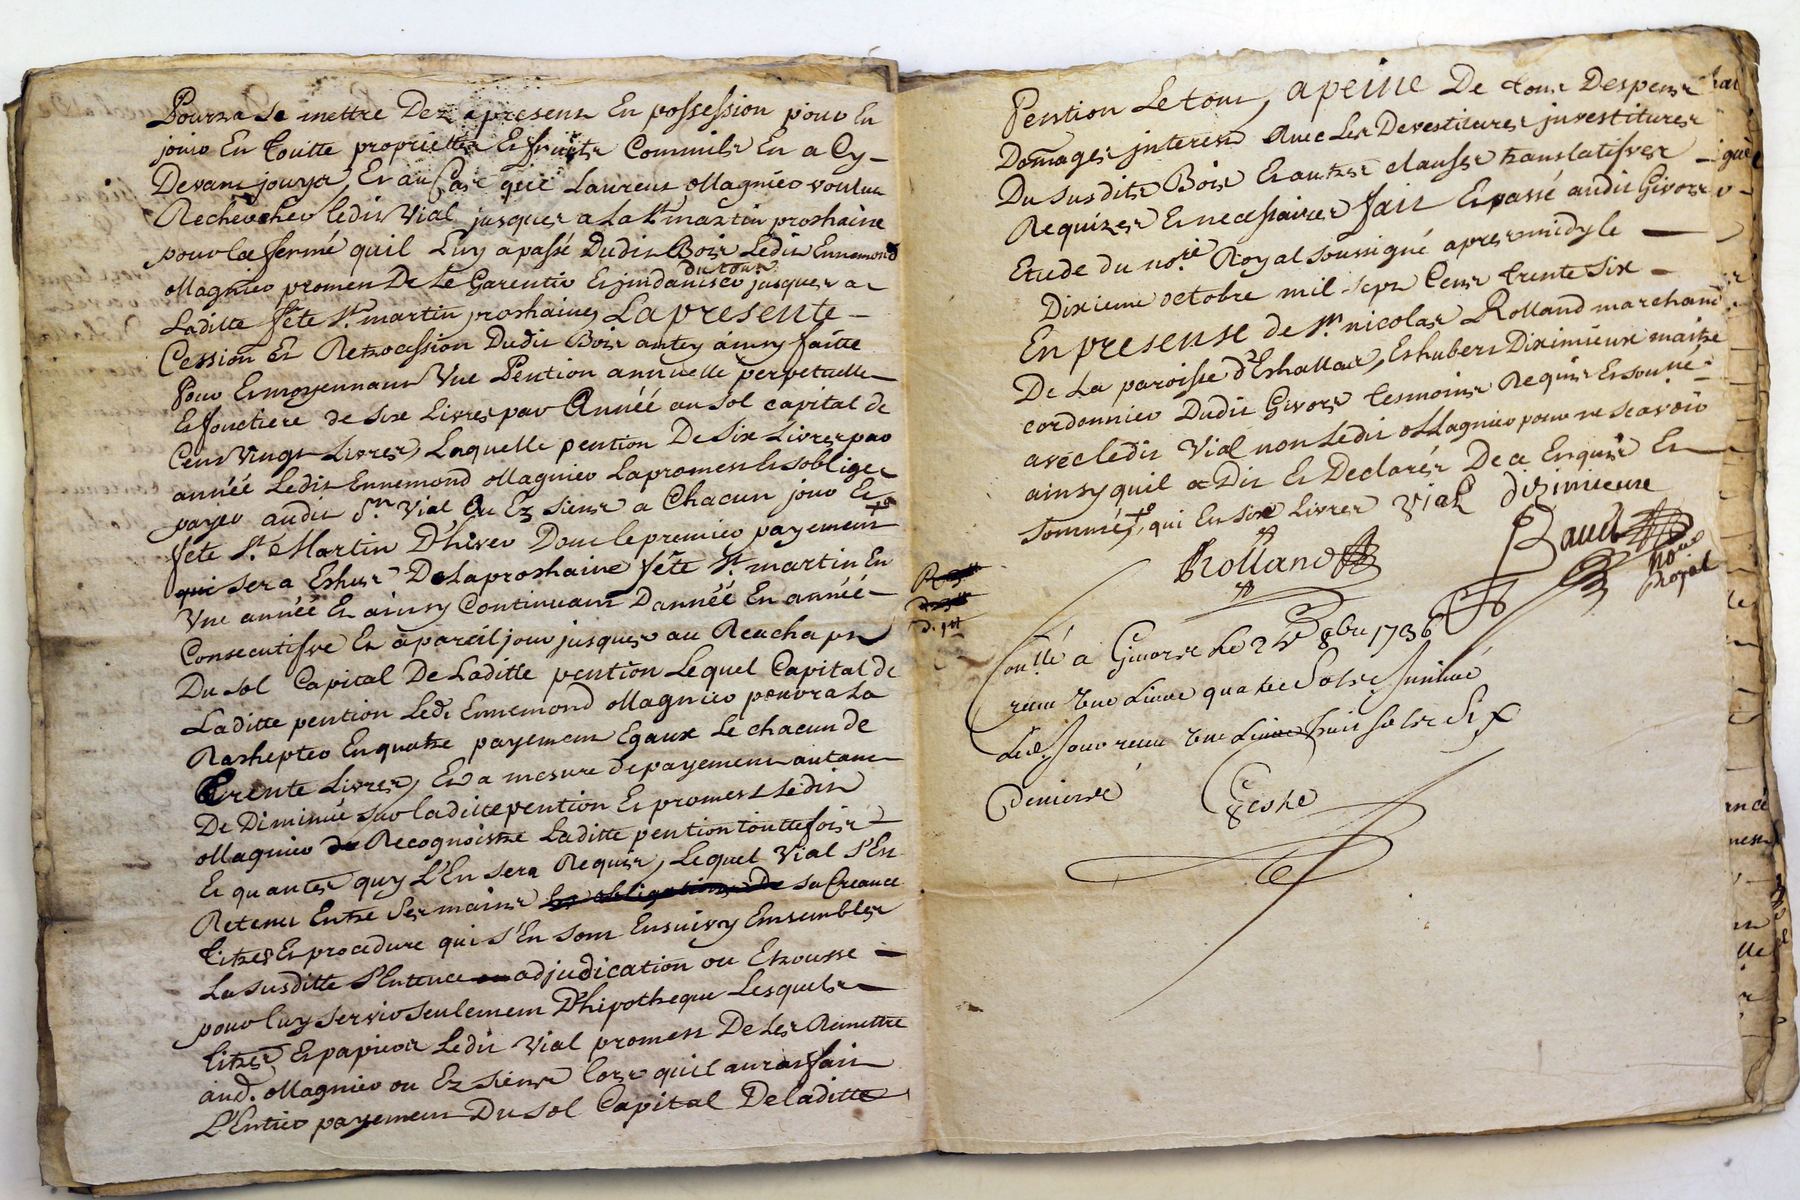 Pourra Se mettre Dez apresent En possession pour En
jouir En toutte proprietté Et fruits Comm'ils En a Cy-
Devant jouy, Et au Cas que Laurens Magnier voulut
Rechercher ledit Vial jusques a La St martin prochaine
pour la ferme quil Luy a passé Dudit Bois Ledit Ennemond
Magnier promet De Le Garentir Et jindaniser du tout jusques a
Laditte fête St martin prochaine, La presente
Cession Et Retrocession Dudit Bois ainsy faitte
Pour Et moyennant Vne Pention annuelle perpetuelle
Et fonctiere de six Livres par Année au sol capital de
Cent Vingt Livres, Laquelle pention De Six Livres par
année Ledit Ennemond Magnier La promet Et s'oblige
payer audit Sr Vial Ou Ez siens a Chacun jour Et
fete St Martin D'hiver Dont le premier payement
qui sera Eshus De La proshaine fête St martin En
Vne année Et ainsy Continuant D'année En année
Consecutifve Et a pareil jour jusques au Reachapt
Du sol Capital De Laditte pention Lequel Capital de
Laditte pention Ledt Ennemond Magnier pourra La
Rashepter En quatre payement Egaux Le chacun de
trente Livres, Et a mesure de payement autant
De Diminué sur laditte pention Et promet Ledit
Magnier de Recognoistre Laditte pention touttefois
Et quantes quy L'En sera Requis, Lequel Vial S'En
Retenu Entre Ses mains les obligations De sa Creance
titres Et procedure qui s'En sont Ensuivy Ensembles
La susditte Sentence adjudication ou Etrousse
pour luy servir seulement D'hipotheque Lesquels
titres Et papiers Ledit Vial promet De Les Remettre
aud. Magnier ou Ez siens lors quil aura fait
L'Entier payement Du sol Capital De laditte
Pention Le tout, a peine De tous Despens
Domages jnterests Avec Les Devestitures jnvestitures
Du susdits Bois Et autres clauses translatifves
Requizes Et necessaires fait Et passé audit Givors
Etude du nore Royal soussigné apres midy le
Dixieme octobre mil sept Cent trente Six
En presense de Sr nicolas Rolland marchand
De La paroisse d'Eshallas, Et hubert Diximieux maitre
cordonnier Dudit Givors tesmoins Requis Et soune
avec ledit Vial non Ledit Magnier pour ne Scavoir
ainsy quil a Dit Et Declarés De ce Enquis Et
sommé, qui En six Livres Vial dizimieux
Rolland
Baud
nore
Royal
Contllé a Givors Le 24 8bre 1736
receu Vne Livre quatre Sols
Led. Jour receu Vne Livre huit sols Six
Deniers